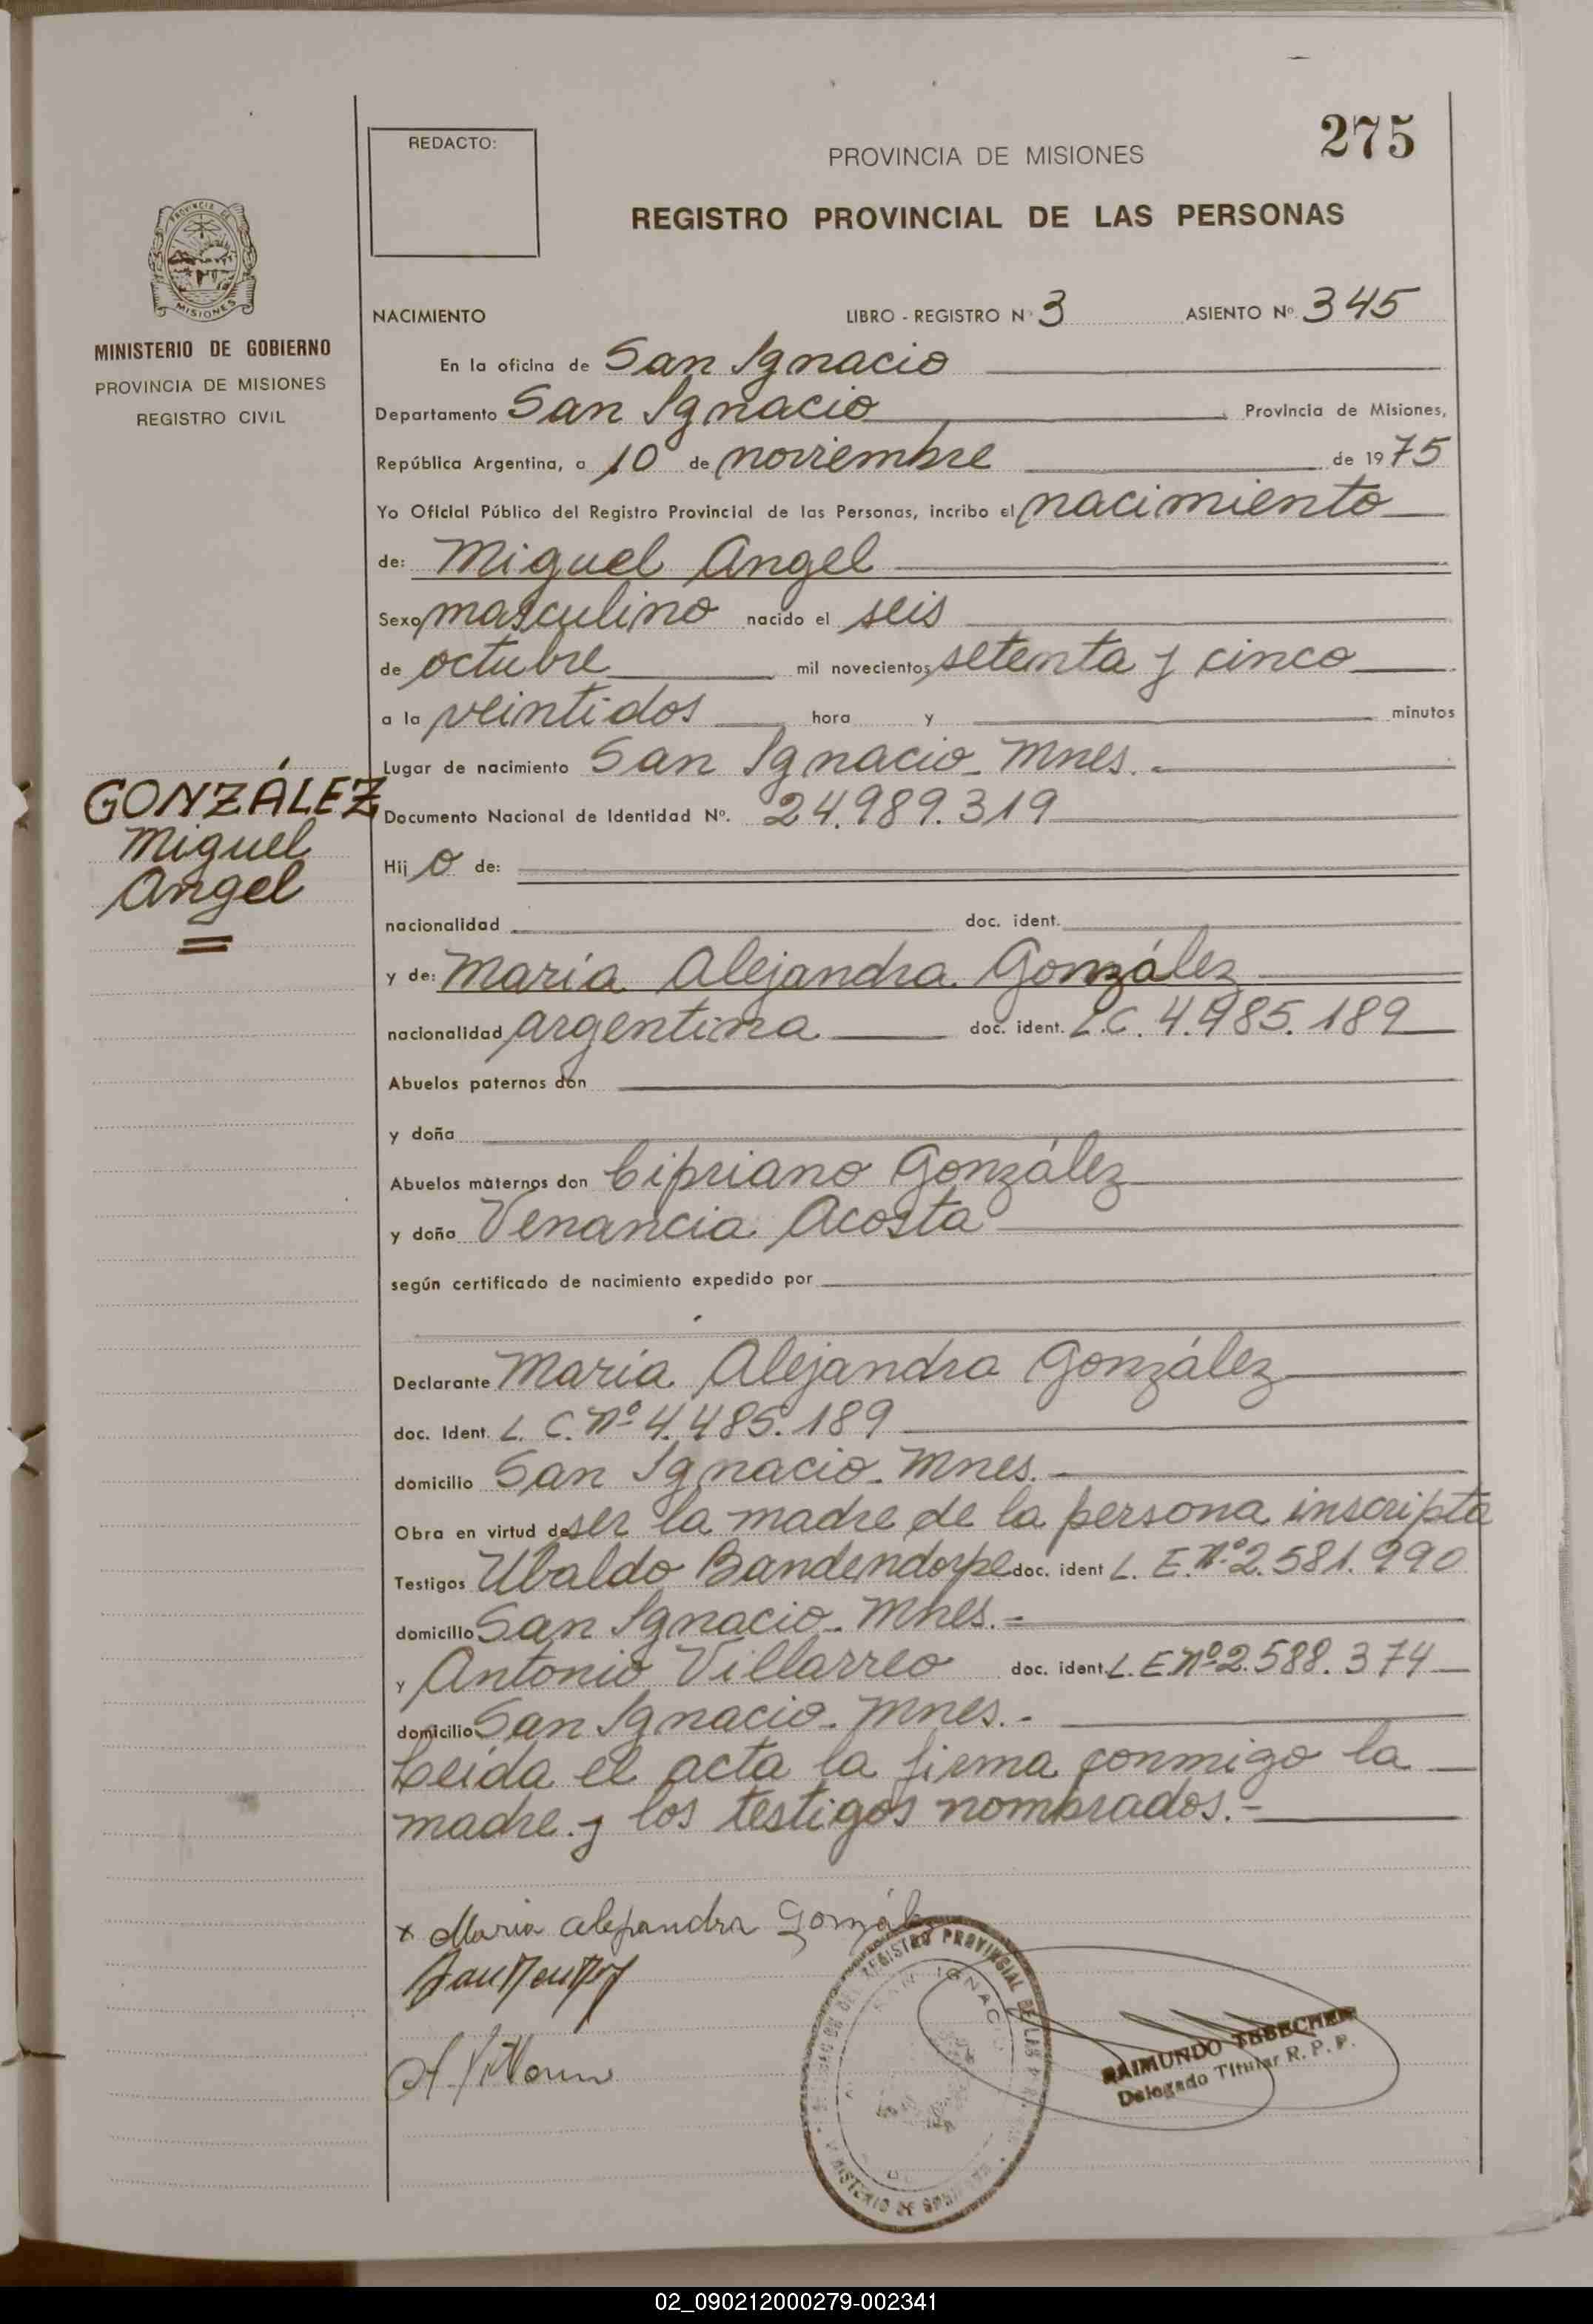 275
REDACTO:
PROVINCIA DE MISIONES
REGISTRO PROVINCIAL DE LAS PERSONAS
PROVINCIA DE
MISIONES
MINISTERIO DE GOBIERNO
PROVINCIA DE MISIONES
REGISTRO CIVIL
NACIMIENTO LIBRO - REGISTRO Nº 3 ASIENTO Nº 345
En la oficina de San Ignacio
Departamento San Ignacio Provincia de Misiones,
República Argentina, a 10 de noviembre de 1975
Yo Oficial Público del Registro Provincial de las Personas, incribo el nacimiento
de: Miguel Angel
Sexo masculino nacido el seis
de octubre mil novecientos setenta y cinco
a la veintidos hora y minutos
Lugar de nacimiento San Ignacio - Mnes. -
GONZÁLEZ
Miguel
Angel
Documento Nacional de Identidad Nº. 24.989.319
Hij o de:
nacionalidad doc. ident.
y de: María Alejandra González
nacionalidad argentina doc. ident. L.C. 4.985.189
Abuelos paternos don
y doña
Abuelos maternos don Cipriano González
y doña Venancia Acosta
según certificado de nacimiento expedido por
Declarante María Alejandra González
doc. Ident. L. C. nº 4.485.189
domicilio San Ignacio - Mnes. -
Obra en virtud de ser la madre de la persona inscripta
Testigos Ubaldo Bandendorpe doc. ident L. E. nº 2.581.990
domicilio San Ignacio - Mnes. -
y Antonio Villarreo doc. ident. L. E nº 2.588.374
domicilio San Ignacio - Mnes. -
Leída el acta la firma conmigo la
madre y los testigos nombrados. -
x Maria alejandra Gonzále
REGISTRO PROVINCIAL DE LAS
SAN IGNACIO
MINISTERIO DE
RAIMUNDO TEBECHERI
Delegado Titular R. P. P.
02_090212000279-002341